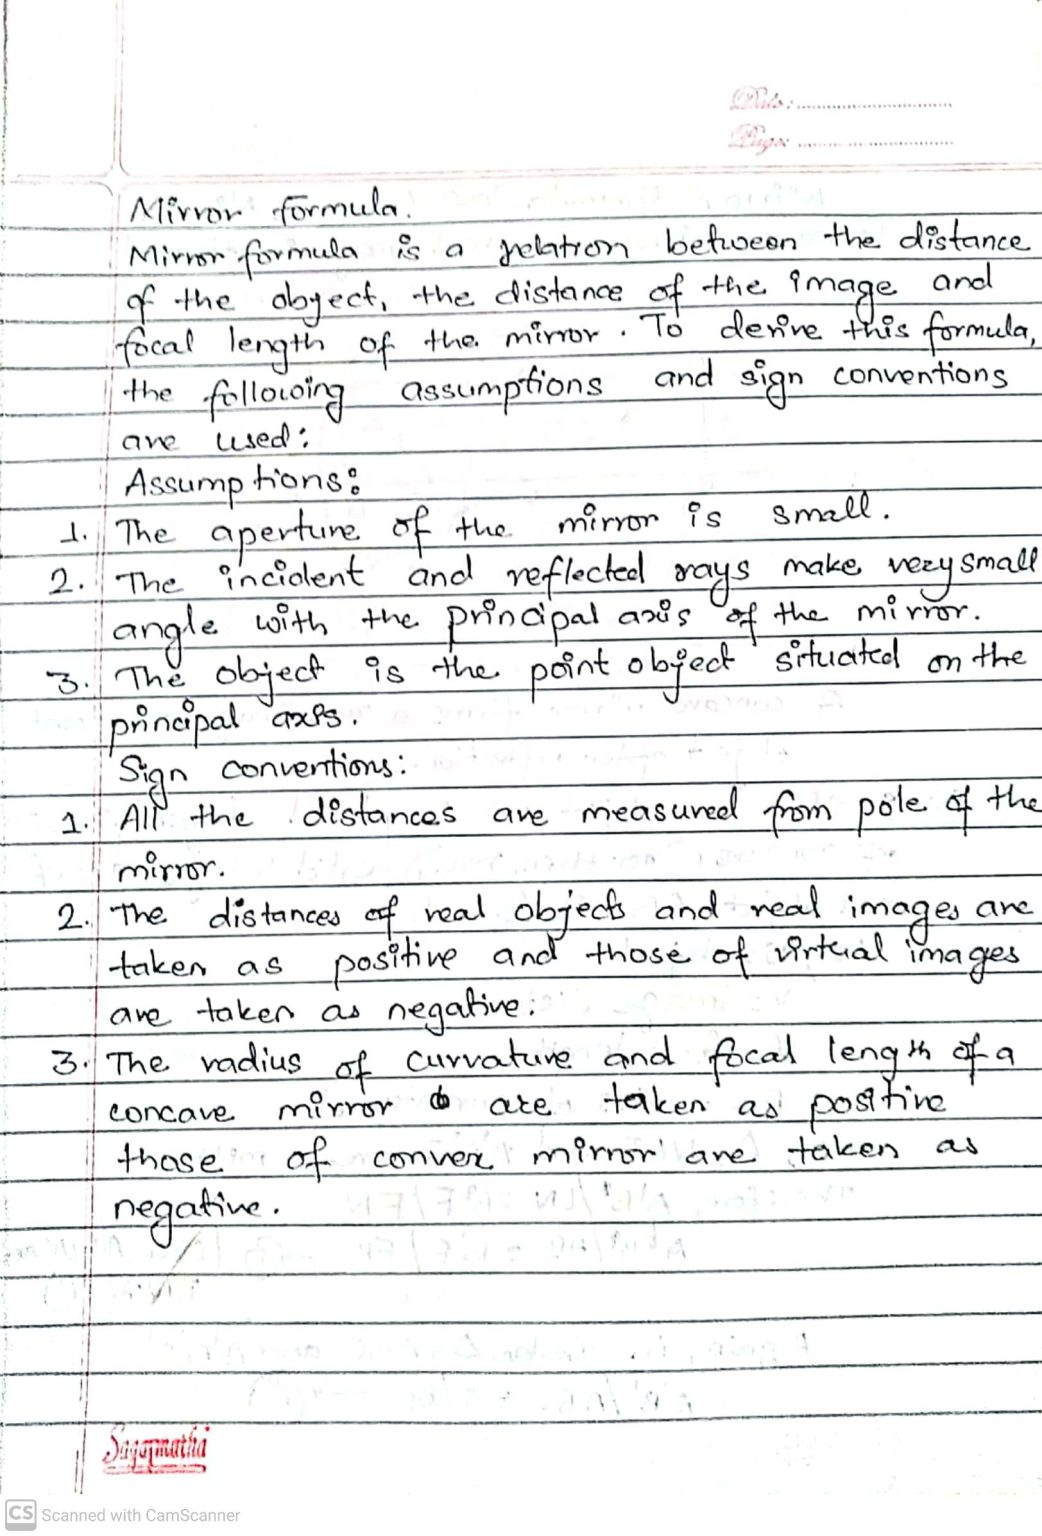 Date:
Page:
Mirror formula.
Mirror formula is a relation between the distance
of the object, the distance of the image and
focal length of the mirror. To derive this formula,
the following assumptions and sign conventions
are used:
Assumptions:
1. The aperture of the mirror is small.
2. The incident and reflected rays make very small
angle with the principal axis of the mirror.
3. The object is the point object situated on the
principal axis.
Sign conventions:
1. All the distances are measured from pole of the
mirror.
2. The distances of real objects and real images are
taken as positive and those of virtual images
are taken as negative.
3. The radius of curvature and focal length of a
concave mirror are taken as positive
those of convex mirror are taken as
negative.
Sagarmatha
CS Scanned with CamScanner